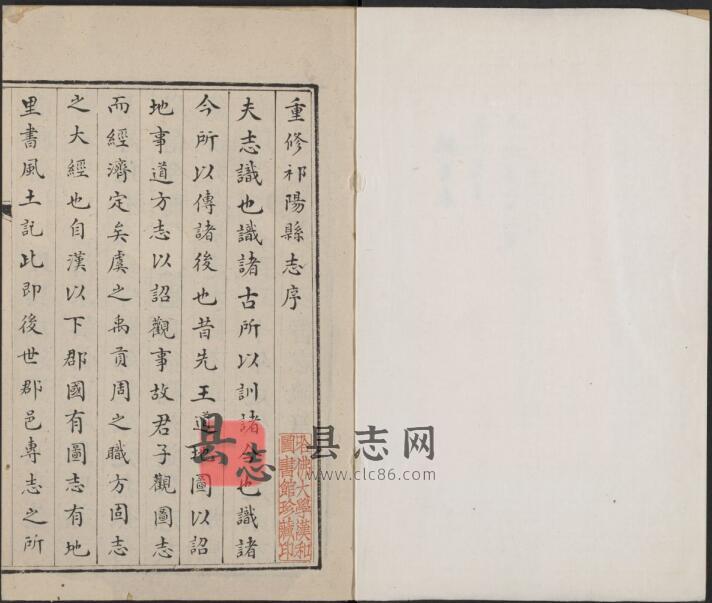 重修祁陽縣志序
夫志識也識諸古所以訓諸今也識諸
今所以傳諸後也昔先王道地圖以詔
地事道方志以詔觀事故君子觀圖志
而經濟定矣虞之禹貢周之職方固志
之大經也自漢以下郡國有圖志有地
里書風土記此即後世郡邑專志之所
哈佛大學漢和
圖書館珍藏印
县志
县志网
www.clc86.com